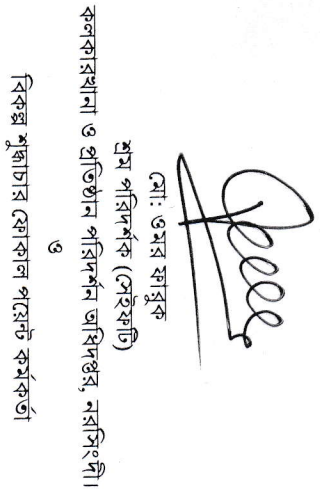 মো: ওমর ফারুক
শ্রম পরিদর্শক (সেইফটি)
কলকারখানা ও প্রতিষ্ঠান পরিদর্শন অধিদপ্তর, নরসিংদী।
ও
বিকল্প শুদ্ধাচার ফোকাল পয়েন্ট কর্মকর্তা